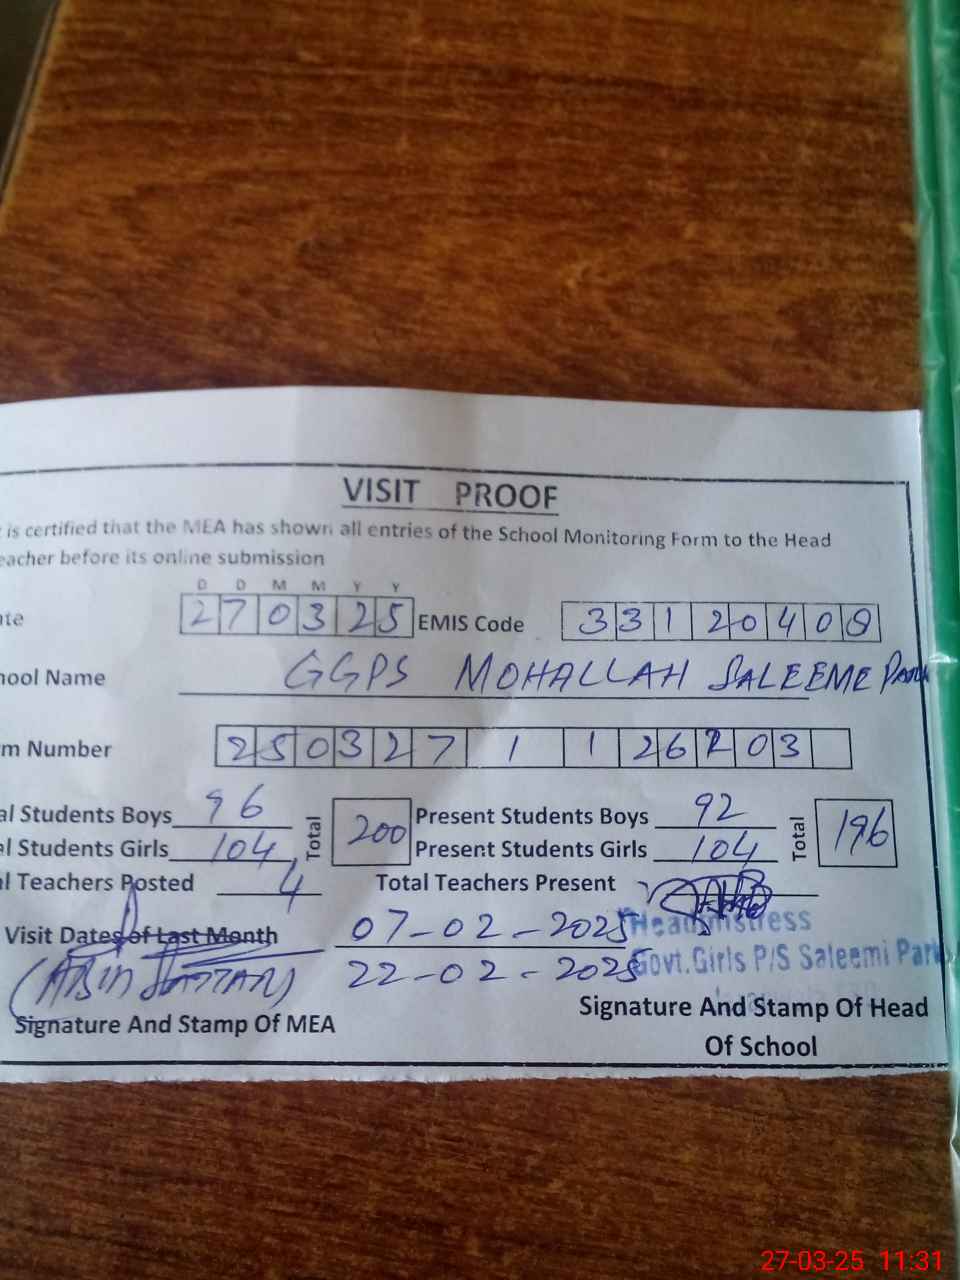 VISIT PROOF
is certified that the MEA has shown all entries of the School Monitoring Form to the Head
eacher before its online submission
D D M M Y Y
te 270325 EMIS Code 33120409
hool Name GGPS MOHALLAH SALEEME PARK
m Number 250327 1 1 26203
al Students Boys 96 Total 200 Present Students Boys 92 Total 196
al Students Girls 104 Present Students Girls 104
al Teachers Posted 4 Total Teachers Present
Visit Dates of Last Month 07-02-2025
22-02-2025
Headmistress
Govt.Girls P/S Saleemi Park
Signature And Stamp Of MEA
Signature And Stamp Of Head
Of School
27-03-25 11:31